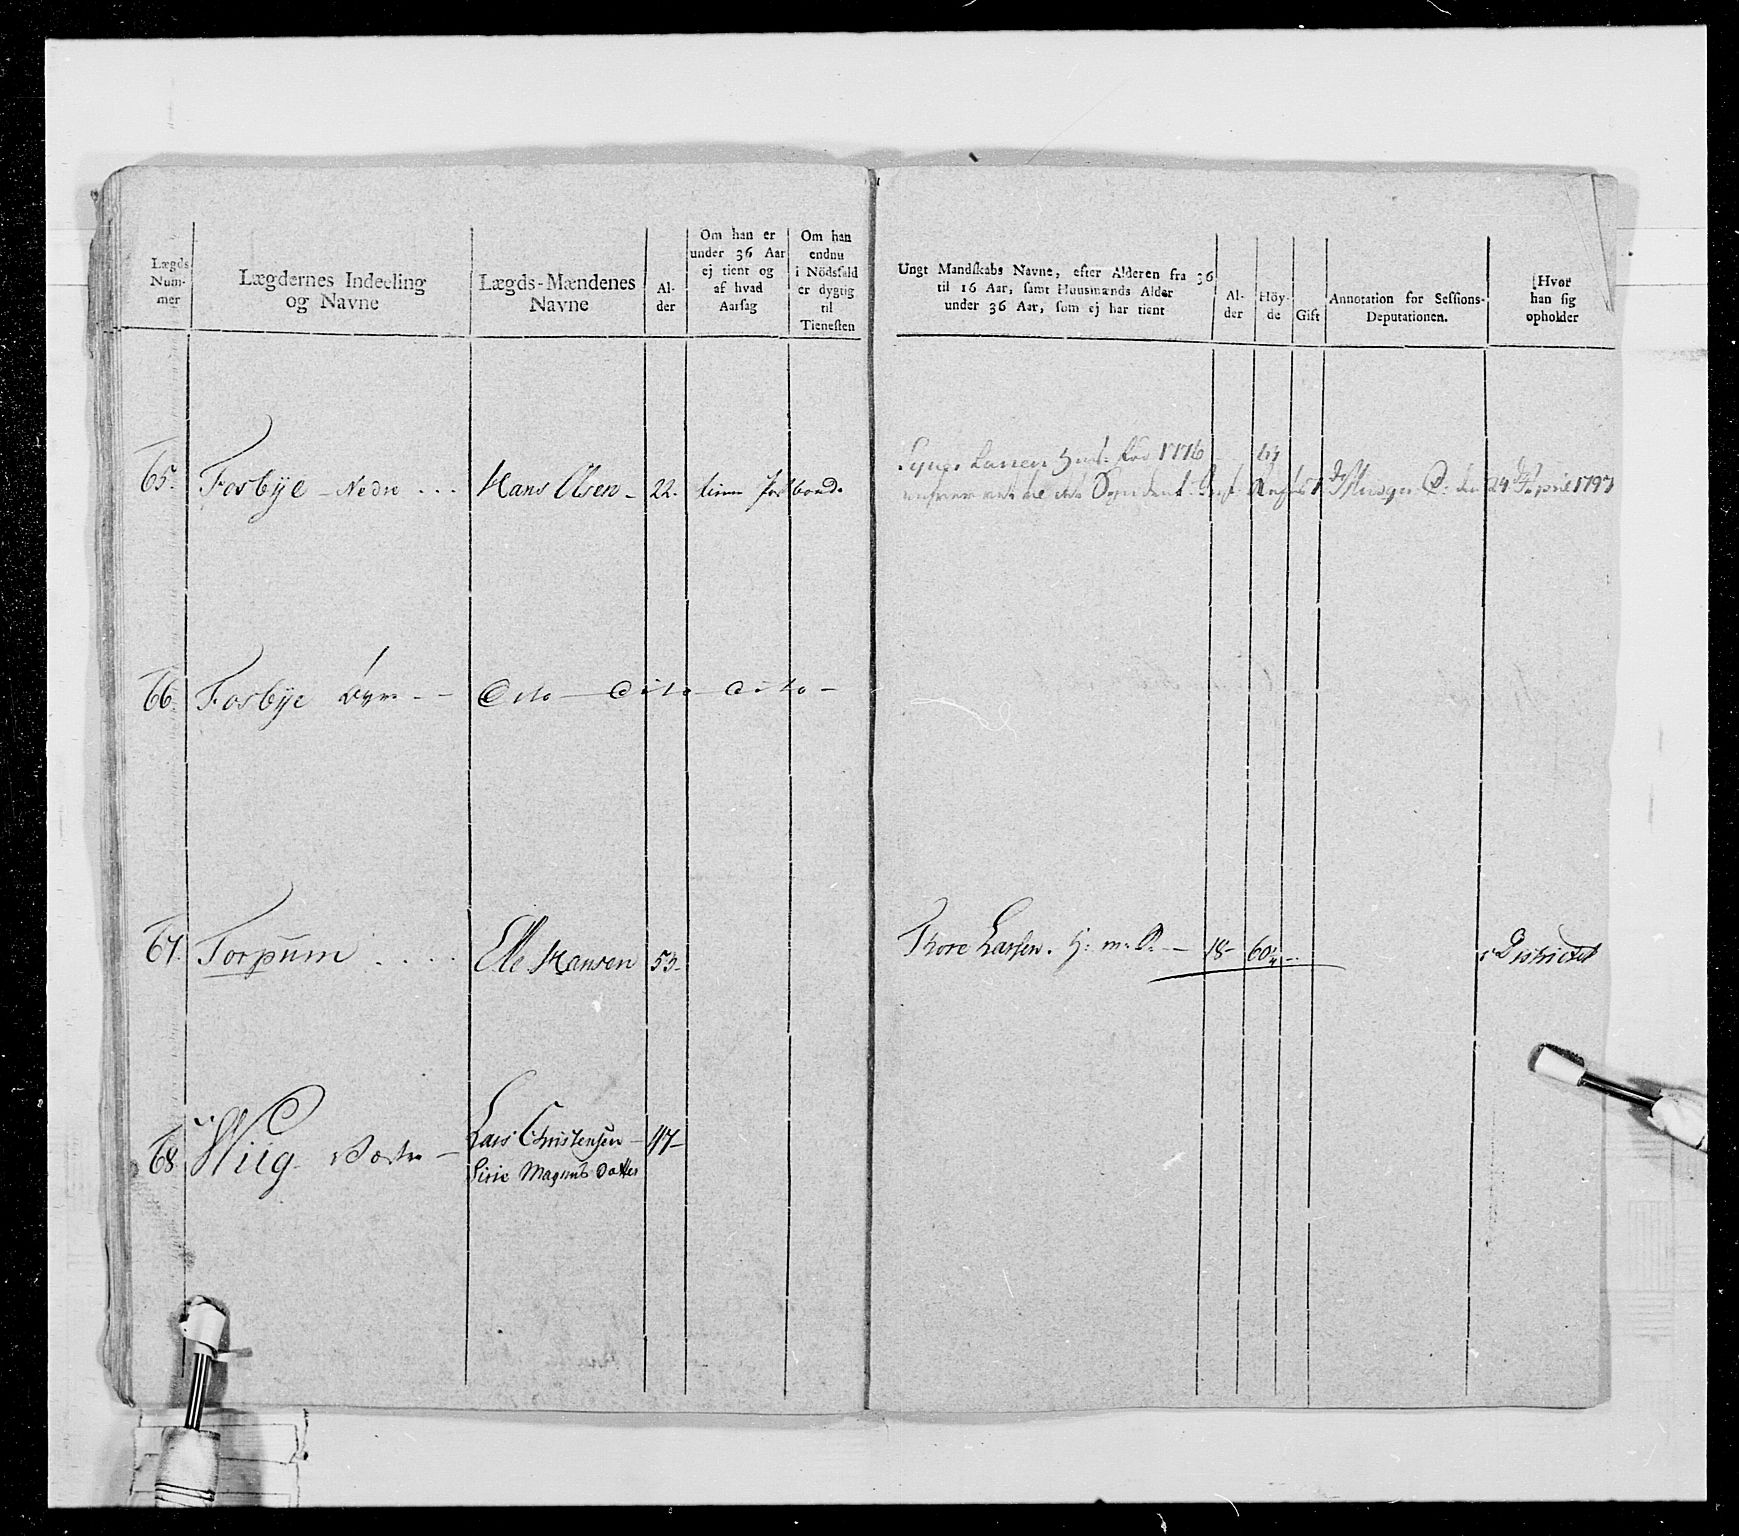 Lægds Num-mer
Lægdernes Indeeling og Navne
Lægds-Mændenes Navne
Al-der
Om han er under 36 Aar ej tient og af hvad Aarsag
Om han endnu i Nödsfald er dygtig til Tienesten
Ungt Mandskabs Navne, efter Alderen fra 36 til 16 Aar, samt Huusmænds Alder under 36 Aar, som ej har tient
Al-der
Höy-de
Gift
Annotation for Sessions-Deputationen.
Hvor han sig opholder
65. Fosbÿe - Nedre ... Hans Olsen - 22.
1776
den 24 April 1797
66. Fosbÿe Øvre - - Dito - dito - dito -
67. Torpum .... Elle Hansen 53.
Thore Larsen. H: m: S. - 18 - 60
i Districtet
68. Wiig Væstre - Lars Christensen - 47 -
Sirie Magnus Datter